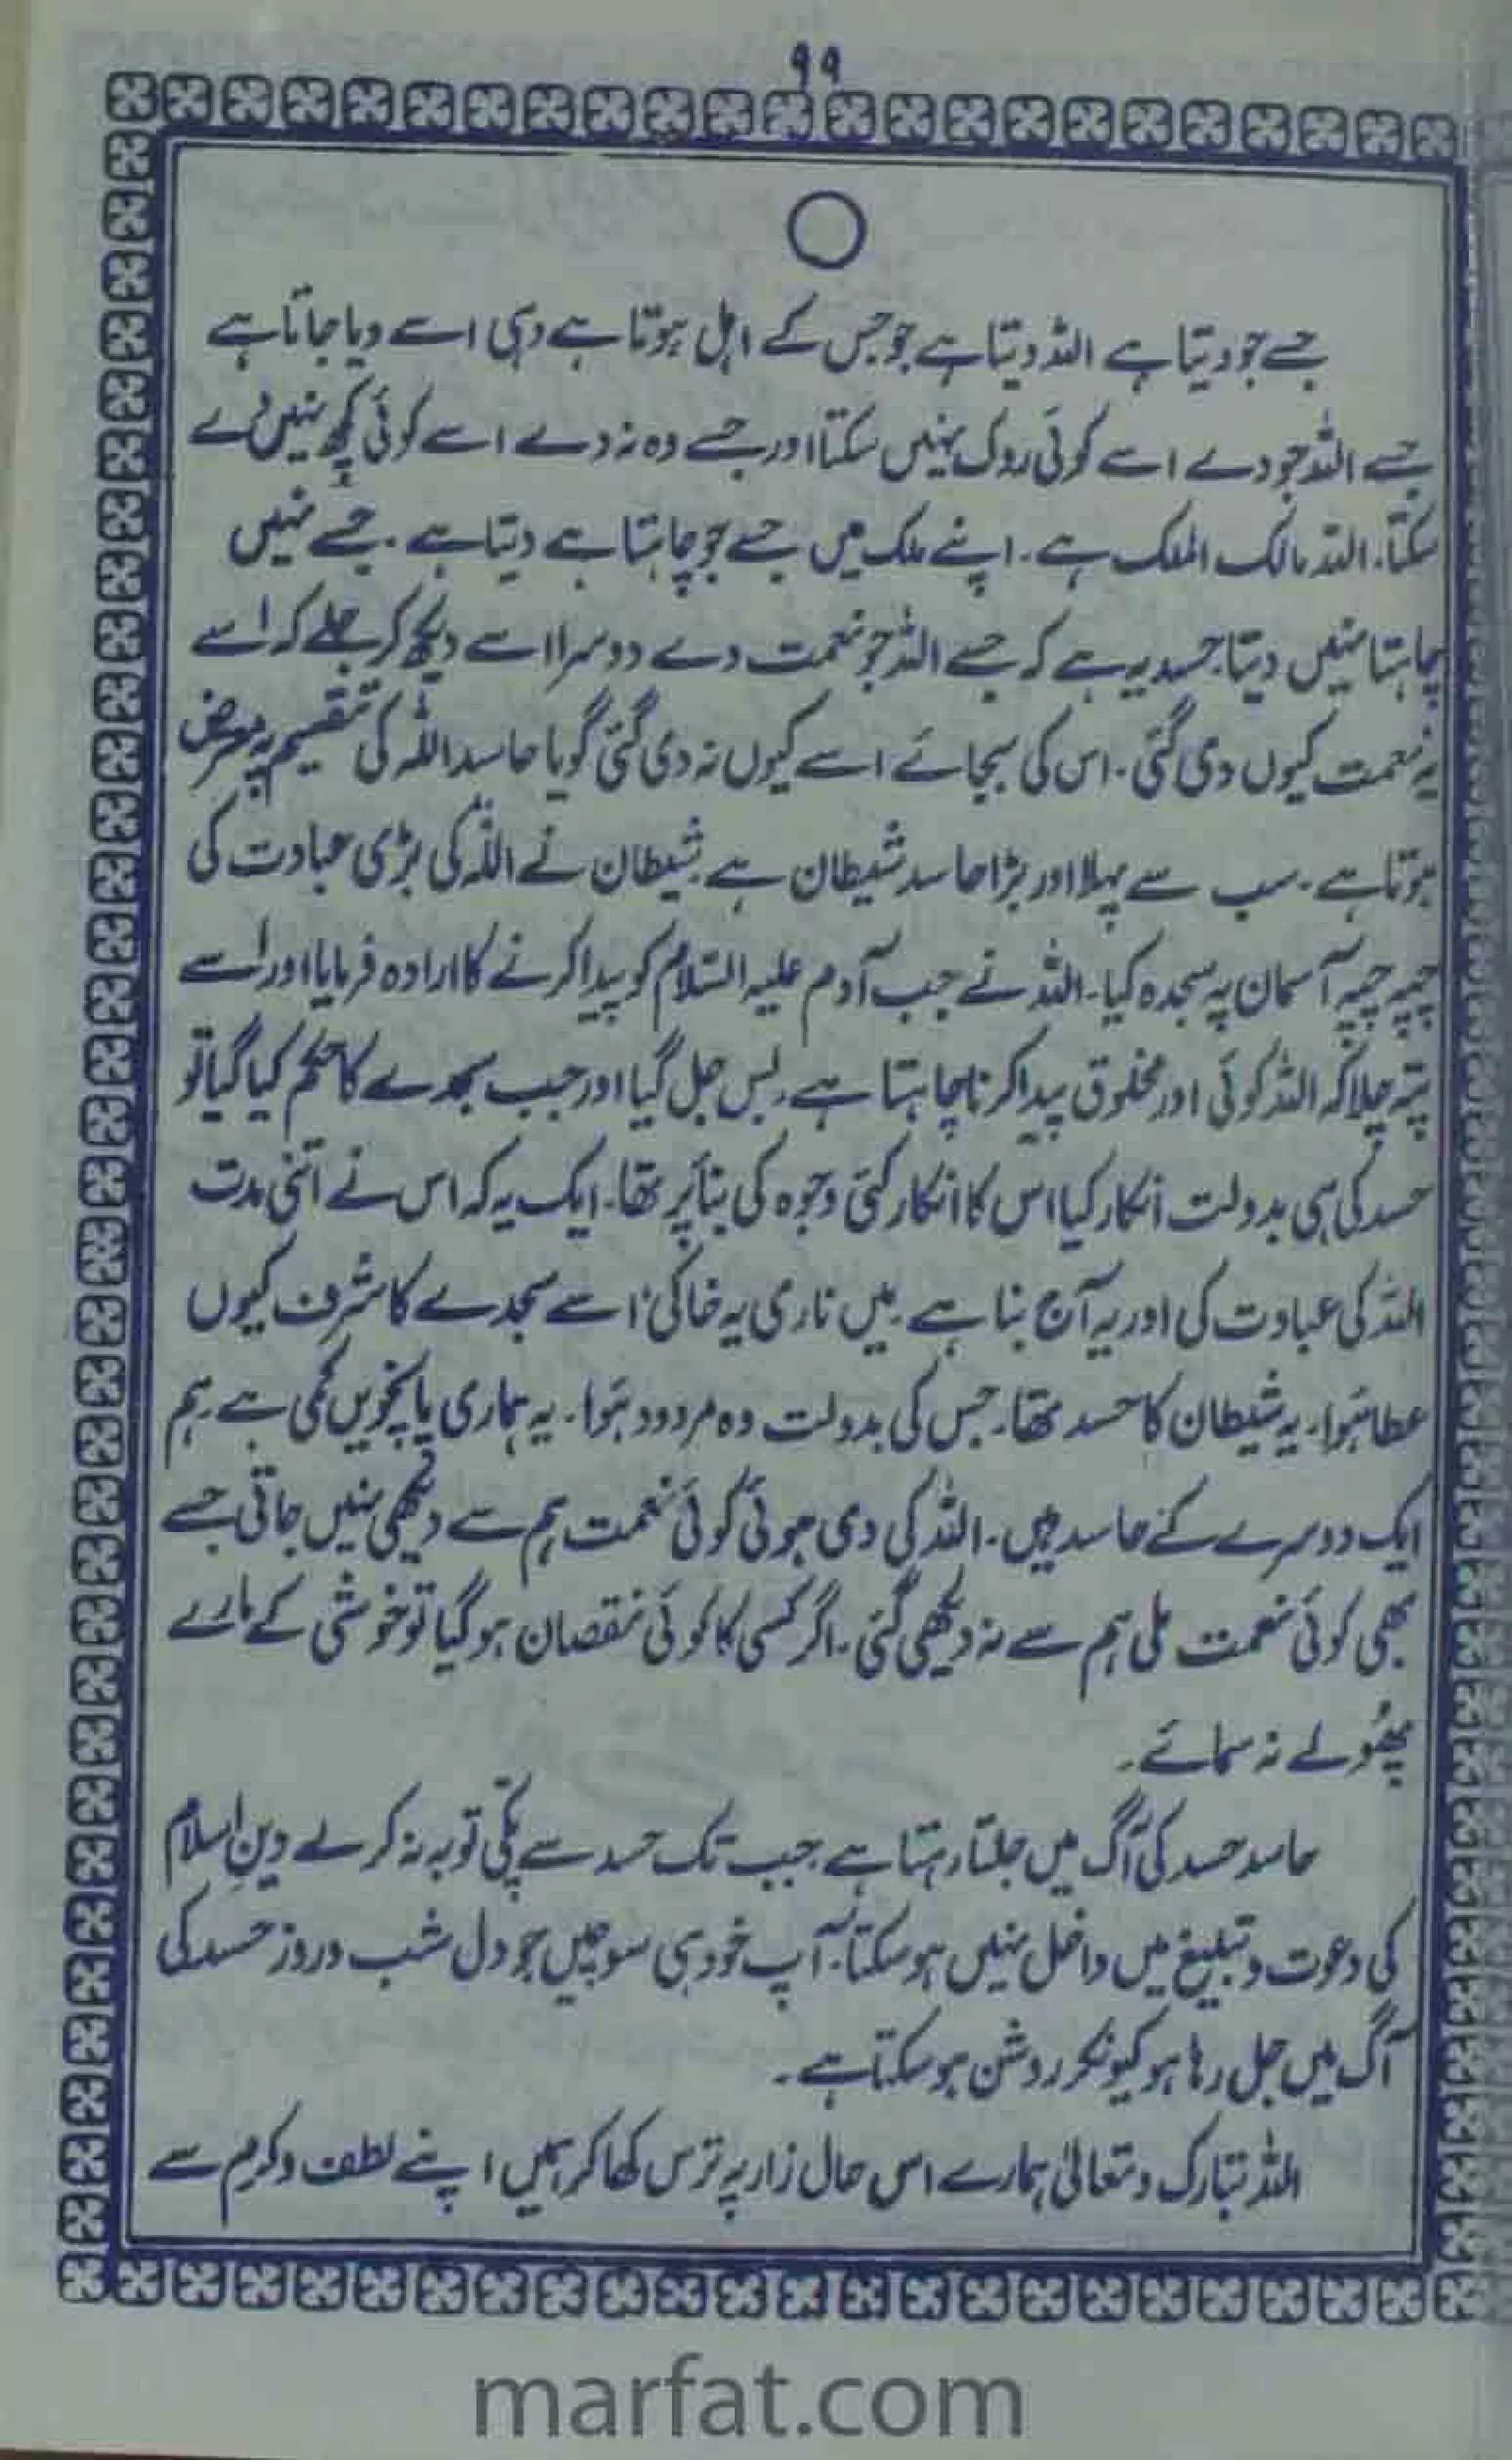 ۹۹
جسے جو دیتا ہے اللہ دیتا ہے جو جس کے اہل ہوتا ہے وہی اسے دیا جاتا ہے
جسے اللہ جو دے اسے کوئی روک نہیں سکتا اور جسے وہ نہ دے اسے کوئی کچھ نہیں دے
سکتا۔ اللہ مالک الملک ہے۔ اپنے ملک میں جسے جو چاہتا ہے دیتا ہے۔ جسے نہیں
چاہتا نہیں دیتا۔ حسد یہ ہے کہ جسے اللہ جو نعمت دے دوسرا اسے دیکھ کر جلے کہ اسے
یہ نعمت کیوں دی گئی۔ اس کی بجائے اسے کیوں نہ دی گئی گویا حاسد اللہ کی تقسیم پہ معترض
ہوتا ہے۔ سب سے پہلا اور بڑا حاسد شیطان ہے۔ شیطان نے اللہ کی بڑی عبادت کی
چپہ چپہ آسمان پہ سجدہ کیا۔ اللہ نے جب آدم علیہ السلام کو پیدا کرنے کا ارادہ فرمایا اور اسے
پتہ چلا کہ اللہ کوئی اور مخلوق پیدا کرنا چاہتا ہے۔ بس جل گیا اور جب سجدے کا حکم کیا گیا تو
حسد کی ہی بدولت انکار کیا اس کا انکار کئی وجوہ کی بنا پر تھا۔ ایک یہ کہ اس نے اتنی مدت
اللہ کی عبادت کی اور یہ آج بنا ہے۔ میں ناری یہ خاکی، اسے سجدے کا شرف کیوں
عطا ہوا۔ یہ شیطان کا حسد تھا۔ جس کی بدولت وہ مردود ہوا۔ یہ ہماری پانچویں کمی ہے۔ ہم
ایک دوسرے کے حاسد ہیں۔ اللہ کی دی ہوئی کوئی نعمت ہم سے دیکھی نہیں جاتی جسے
بھی کوئی نعمت ملی ہم سے نہ دیکھی گئی۔ اگر کسی کا کوئی نقصان ہو گیا تو خوشی کے مارے
پھولے نہ سمائے۔
حاسد حسد کی آگ میں جلتا رہتا ہے۔ جب تک حسد سے پکی توبہ نہ کر لے دین اسلام
کی دعوت و تبلیغ میں داخل نہیں ہو سکتا۔ آپ خود ہی سوچیں جو دل شب و روز حسد کی
آگ میں جل رہا ہو کیونکر روشن ہو سکتا ہے۔
اللہ تبارک و تعالیٰ ہمارے اس حال زار پہ ترس کھا کر ہمیں اپنے لطف و کرم سے
marfat.com